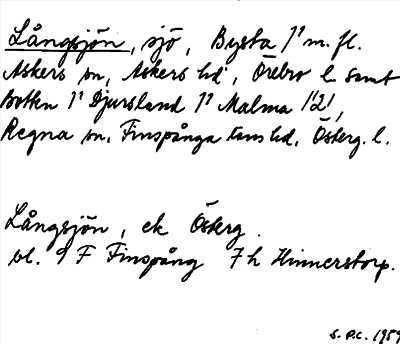 Långsjön, sjö, Bysta 1¹ m. fl.
Askers sn, Askers hd, Örebro l. samt
Botten 1¹ Djursland 1¹ Malma 1¹2¹,
Regna sn, Finspånga läns hd, Österg. l.
Långsjön, ek Österg.
bl. 9 F Finspång 7 h Hinnerstorp.
S. P.C. 1959